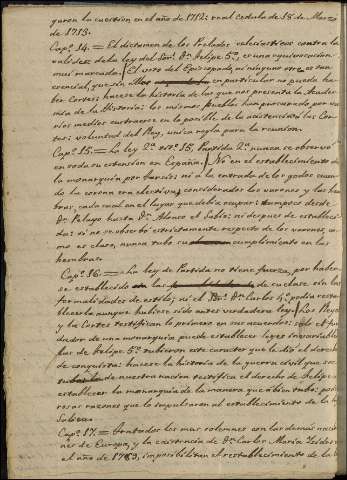 guraron la cuestion en el año de 1712: real cedula de 18 de Marzo
de 1713.
Capº. 14. = El dictamen de los Prelados eclesiasticos contra la
validez de la ley del Sor. Dn. Felipe 5º, es una equivocacion
mui marcada. / El voto del Episcopado, ni ninguno otro es tan
esencial, que sin en particular no pueda ha-
ber Cortes: hacese la historia de las que nos presenta la Acade-
mia de la Historia: los mismos pueblos han procurado por va-
rios medios sustraerse en lo posible de la asistencia à las Cor-
tes: voluntad del Rey, unica regla para la reunion.
Capº. 15. = La ley 2ª titº. 15, Partida 2ª nunca se observò
en toda su estension en España. / Ni en el establecimiento de
la monarquia por barsis; ni à la entrada de los godos cuan-
do la corona era electiva, considerados los varones y las hem-
bras, cada cual en el lugar que debia ocupar: tampoco desde
Dn. Pelayo hasta Dn. Alonso el Sabio; ni despues de estableci-
da: si no se observò estrictamente respecto de los varones, co-
mo es claro, nunca tubo su cumplimiento en las
hembras.
Capº. 16. = La ley de Partida no tiene fuerza, por haber-
se establecido sin las de su clase sin las
formalidades de estilo; ni el Sr. Dn. Carlos 4º. podia resta-
blecerla aunque hubiese sido antes verdadera ley. / Los Reyes
y la Cortes testifican lo primero en sus acuerdos: solo el fun-
dador de una monarquia puede establecer leyes invariables:
fue de Felipe 5º. tubieron este caracter que le dió el derecho
de conquista: hacese la historia de la guerra civil que
de nuestra nacion testifica el derecho de Felipe à
establecer la monarquia de la manera que ò bien tubo; pode-
rosas razones que lo impulsaron al establecimiento de la ley
Salica.
Capº. 17. = Tratados los mas solemnes con las demás nacio-
nes de Europa, y la existencia de Dn. Carlos Maria Isidro en
el año de 1789, imposibilitan el restablecimiento de la